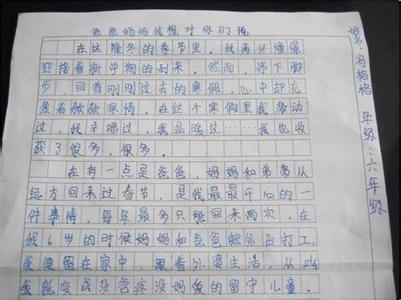 爸爸妈妈我想对你们说
在这隆冬的季节里，我满怀憧憬
迎接着新学期的到来。然而，停下脚
步，回首刚刚过去的寒假，心中却充
盈着款款深情。在这个寒假里我激动
过，我幸福过，我品尝过……我也收
获了很多，很多。
在有一点是爸爸，妈妈和弟弟从
远方回来过春节，是我最最开心的一
件事情，每年最多只能回来两次。在
我6岁的时候妈妈和爸爸就外出打工，
我便留在家中，跟着外婆生活，从此
我就变成没爸疼没妈爱的留守儿童。
年级：六年级